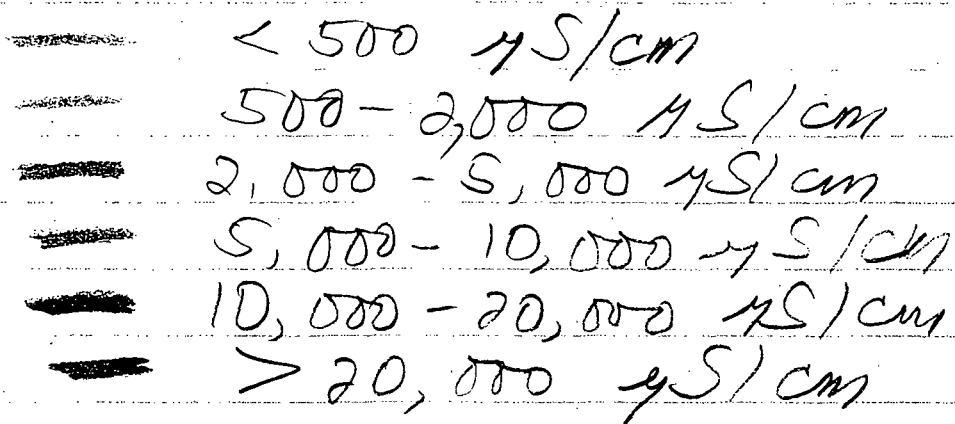 < 500 µS/cm
500 - 2,000 µS/cm
2,000 - 5,000 µS/cm
5,000 - 10,000 µS/cm
10,000 - 20,000 µS/cm
> 20,000 µS/cm